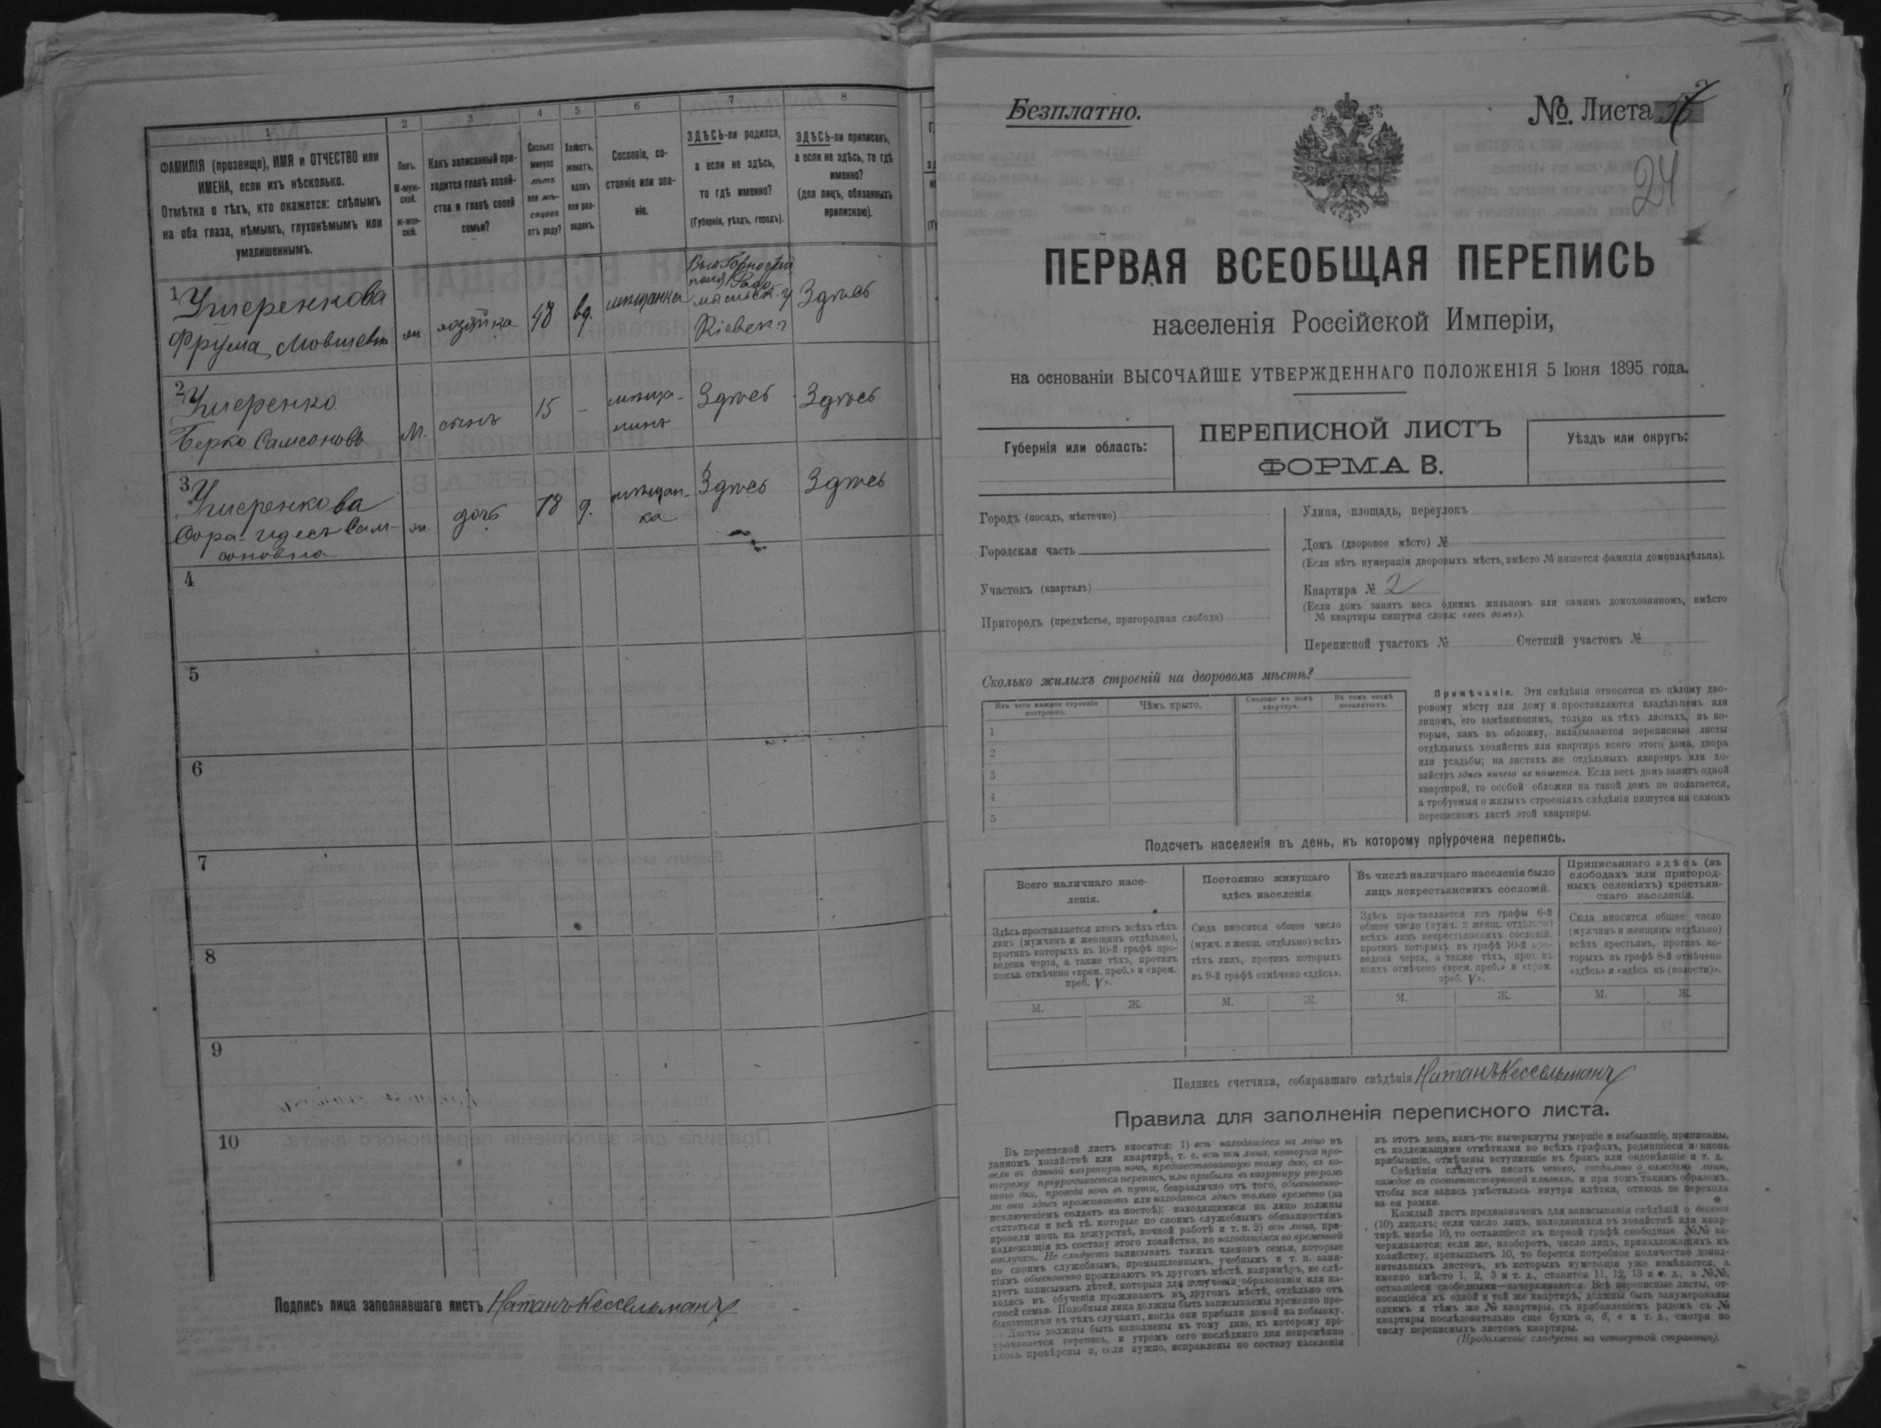 1
2
3
4
5
6
7
8
ФАМИЛІЯ (прозвище), ИМЯ и ОТЧЕСТВО или
ИМЕНА, если ихъ нѣсколько.
Отмѣтка о тѣхъ, кто окажется: слѣпымъ
на оба глаза, нѣмымъ, глухонѣмымъ или
умалишеннымъ.
Полъ.
М-муж-
ской.
ж-жен-
скій.
Какъ записанный при-
ходится главѣ хозяй-
ства и главѣ своей
семьи?
Сколько
минуло
лѣтъ
или мѣ-
сяцевъ
отъ роду?
Холостъ,
женатъ,
вдовъ
или раз-
веденъ.
Сословіе, со-
стояніе или зва-
ніе.
ЗДѢСЬ-ли родился,
а если не здѣсь,
то гдѣ именно?
(Губернія, уѣздъ, городъ).
ЗДѢСЬ-ли приписанъ,
а если не здѣсь, то гдѣ
именно?
(для лицъ, обязанныхъ
припискою).
1
Фрума Мовшевна
хозяйка
48
вд.
мѣщанка
Кіевск. г
Здѣсь
2
Берко Самсоновъ
М.
сынъ
15
-
мѣща-
нинъ
Здѣсь
Здѣсь
3
Сора-Идесъ Сам-
соновна
дочь
18
д.
мѣщан-
ка
Здѣсь
Здѣсь
4
5
6
7
8
9
10
Подпись лица заполнявшаго листъ Натанъ Кессельманъ
Безплатно.
№. Листа
24
ПЕРВАЯ ВСЕОБЩАЯ ПЕРЕПИСЬ
населенія Россійской Имперіи,
на основаніи ВЫСОЧАЙШЕ УТВЕРЖДЕННАГО ПОЛОЖЕНІЯ 5 Іюня 1895 года.
ПЕРЕПИСНОЙ ЛИСТЪ
ФОРМА В.
Губернія или область:
Уѣздъ или округъ:
Городъ (посадъ, мѣстечко)
Городская часть
Участокъ (кварталъ)
Пригородъ (предмѣстье, пригородная слобода)
Улица, площадь, переулокъ
Домъ (дворовое мѣсто) №
(Если нѣтъ нумераціи дворовыхъ мѣстъ, вмѣсто № пишется фамилія домовладѣльца).
Квартира № 2
(Если домъ занятъ весь однимъ жильцомъ или самимъ домохозяиномъ, вмѣсто
№ квартиры пишутся слова: «весь домъ»).
Переписной участокъ № Счетный участокъ №
Сколько жилыхъ строеній на дворовомъ мѣстѣ?
Изъ чего каждое строеніе
построено.
Чѣмъ крыто.
Сколько въ немъ
квартиръ.
Въ томъ числѣ
незанятыхъ.
1
2
3
4
5
Примѣчаніе. Эти свѣдѣнія относятся къ цѣлому дво-
ровому мѣсту или дому и проставляются владѣльцемъ или
лицомъ, его замѣняющимъ, только на тѣхъ листахъ, въ ко-
торые, какъ въ обложку, вкладываются переписные листы
отдѣльныхъ хозяйствъ или квартиръ всего этого дома, двора
или усадьбы; на листахъ же отдѣльныхъ квартиръ или хо-
зяйствъ здѣсь ничего не пишется. Если весь домъ занятъ одной
квартирой, то особой обложки на такой домъ не полагается,
а требуемыя о жилыхъ строеніяхъ свѣдѣнія пишутся на самомъ
переписномъ листѣ этой квартиры.
Подсчетъ населенія въ день, къ которому пріурочена перепись.
Всего наличнаго насе-
ленія.
Постоянно живущаго
здѣсь населенія.
Въ числѣ наличнаго населенія было
лицъ некрестьянскихъ сословій.
Приписаннаго здѣсь (въ
слободахъ или пригород-
ныхъ селеніяхъ) крестьян-
скаго населенія.
Здѣсь проставляется итогъ всѣхъ тѣхъ
лицъ (мужчинъ и женщинъ отдѣльно),
противъ которыхъ въ 10-й графѣ про-
ведена черта, а также тѣхъ, противъ
коихъ отмѣчено «врем. преб.» и «врем.
преб. V».
Сюда вносится общее число
(мужч. и женщ. отдѣльно) всѣхъ
тѣхъ лицъ, противъ которыхъ
въ 9-й графѣ отмѣчено «здѣсь».
Здѣсь проставляется изъ графы 6-й
общее число (мужч. и женщ. отдѣльно)
всѣхъ лицъ некрестьянскихъ сословій,
противъ которыхъ въ графѣ 10-й про-
ведена черта, а также тѣхъ, противъ
коихъ отмѣчено «врем. преб.» и «врем.
преб. V».
Сюда вносится общее число
(мужчинъ и женщинъ отдѣльно)
всѣхъ крестьянъ, противъ ко-
торыхъ въ графѣ 8-й отмѣчено
«здѣсь» и «здѣсь къ (волости)».
М. Ж. М. Ж. М. Ж. М. Ж.
Подпись счетчика, собиравшаго свѣдѣнія Натанъ Кессельманъ
Правила для заполненія переписного листа.
Въ переписной листъ вносятся: 1) всѣ находящіеся на лицо въ
данномъ хозяйствѣ или квартирѣ, т. е. всѣ тѣ лица, которыя про-
вели въ данной квартирѣ ночь, предшествовавшую тому дню, къ ко-
торому пріурочивается перепись, или прибыли въ квартиру утромъ
того дня, проведя ночь въ пути, безразлично отъ того, обыкновенно-
ли они здѣсь проживаютъ или находятся здѣсь только временно (за
исключеніемъ солдатъ на постоѣ); находящимися на лицо должны
считаться и всѣ тѣ, которые по своимъ служебнымъ обязанностямъ
провели ночь на дежурствѣ, ночной работѣ и т. п. 2) всѣ лица, при-
надлежащія къ составу этого хозяйства, но находящіяся во временной
отлучкѣ. Не слѣдуетъ записывать такихъ членовъ семьи, которые
по своимъ служебнымъ, промышленнымъ, учебнымъ и т. п. заня-
тіямъ обыкновенно проживаютъ въ другомъ мѣстѣ, напримѣръ, не слѣ-
дуетъ записывать дѣтей, которыя для полученія образованія или на-
ходясь въ обученіи проживаютъ въ другомъ мѣстѣ, отдѣльно отъ
своей семьи. Подобныя лица должны быть записываемы временно пре-
бывающими въ тѣхъ случаяхъ, когда они прибыли домой на побывку.
Листы должны быть заполнены къ тому дню, къ которому прі-
урочивается перепись, и утромъ сего послѣдняго дня непремѣнно
вновь провѣрены и, если нужно, исправлены по составу населенія
въ этотъ день, какъ-то: вычеркнуты умершіе и выбывшіе, приписаны,
съ надлежащими отмѣтками во всѣхъ графахъ, родившіеся и вновь
прибывшіе, отмѣчены вступившіе въ бракъ или овдовѣвшіе и т. д.
Свѣдѣнія слѣдуетъ писать четко, отдѣльно о каждомъ лицѣ,
каждое въ соотвѣтствующей клѣткѣ, и при томъ такимъ образомъ,
чтобы вся запись умѣстилась внутри клѣтки, отнюдь не переходя
за ея рамки.
Каждый листъ предназначенъ для записыванія свѣдѣній о десяти
(10) лицахъ; если число лицъ, находящихся въ хозяйствѣ или квар-
тирѣ, менѣе 10, то оставшіеся въ первой графѣ свободные №№ за-
черкиваются; если же, наоборотъ, число лицъ, принадлежащихъ къ
хозяйству, превышаетъ 10, то берется потребное количество допол-
нительныхъ листовъ, въ которыхъ нумерація уже измѣняется, а
именно вмѣсто 1, 2, 3 и т. д., ставится 11, 12, 13 и т. д., а №№,
оставшіеся свободными—зачеркиваются. Всѣ переписные листы, от-
носящіеся къ одной и той же квартирѣ, должны быть занумерованы
однимъ и тѣмъ же № квартиры, съ прибавленіемъ рядомъ съ №
квартиры послѣдовательно еще буквъ а, б, в и т. д., смотря по
числу переписныхъ листовъ квартиры.
(Продолженіе слѣдуетъ на четвертой страницѣ).